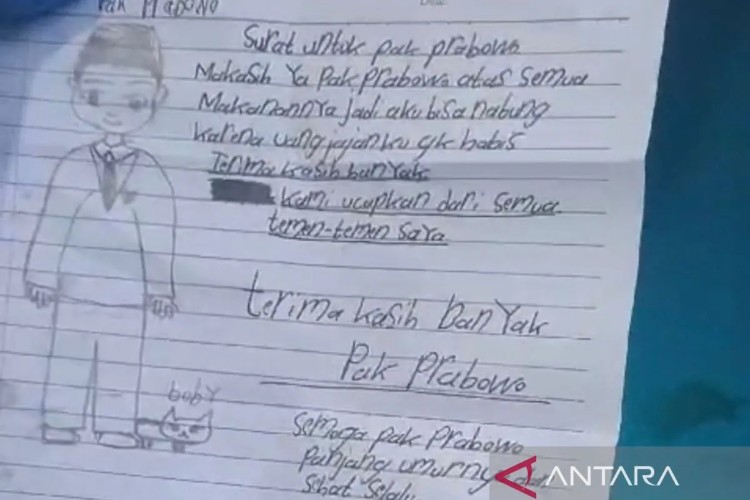 Pak Prabowo
Surat untuk pak prabowo
Makasih Ya Pak Prabowo atas semua
Makanannya Jadi aku bisa nabung
karena uang jajanku gk habis
Terima kasih banyak
kami ucapkan dari semua
temen-temen saya
terima kasih Banyak
Pak Prabowo
semoga pak Prabowo
panjang umurnya dan
sehat selalu
boby
ANTARA